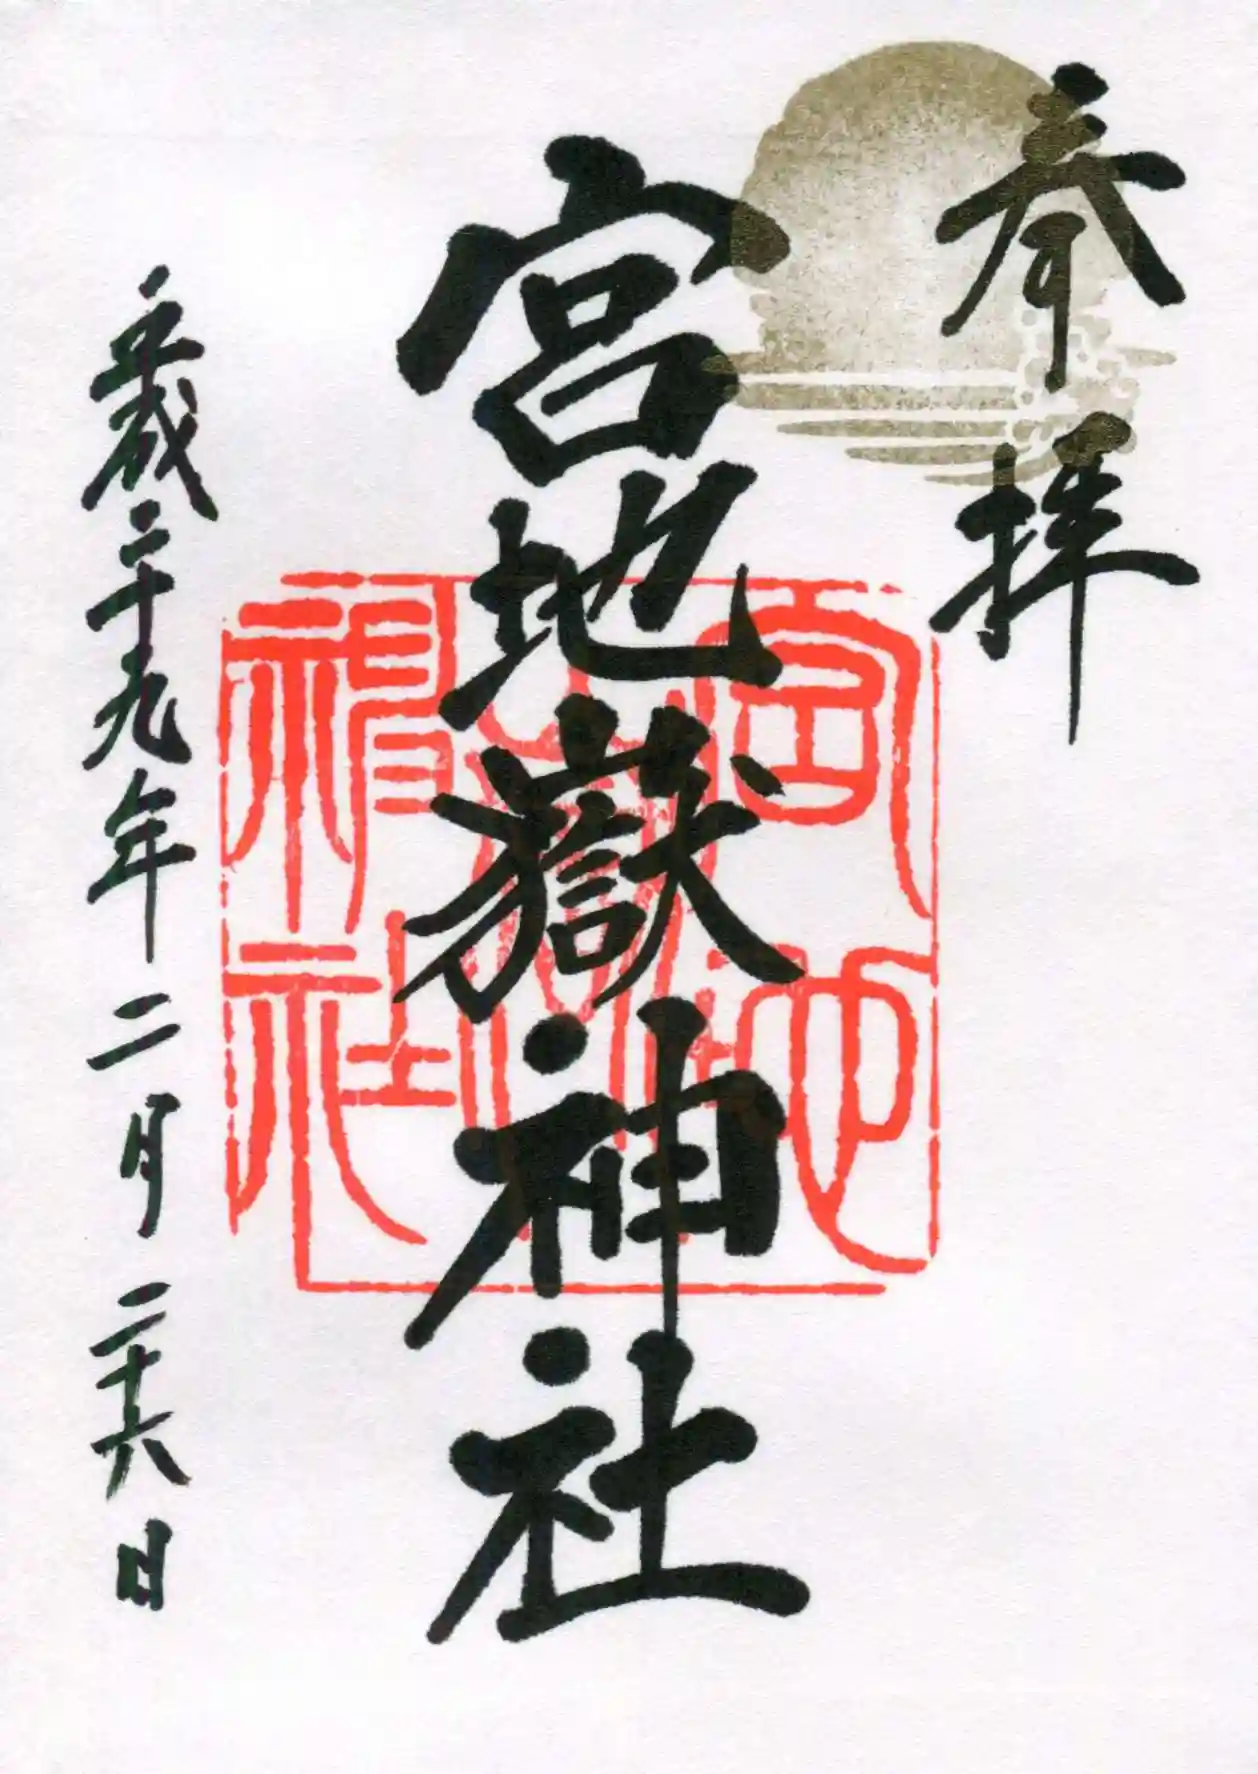 奉拝
宮地嶽神社
宮地嶽神社
平成二十九年二月二十六日